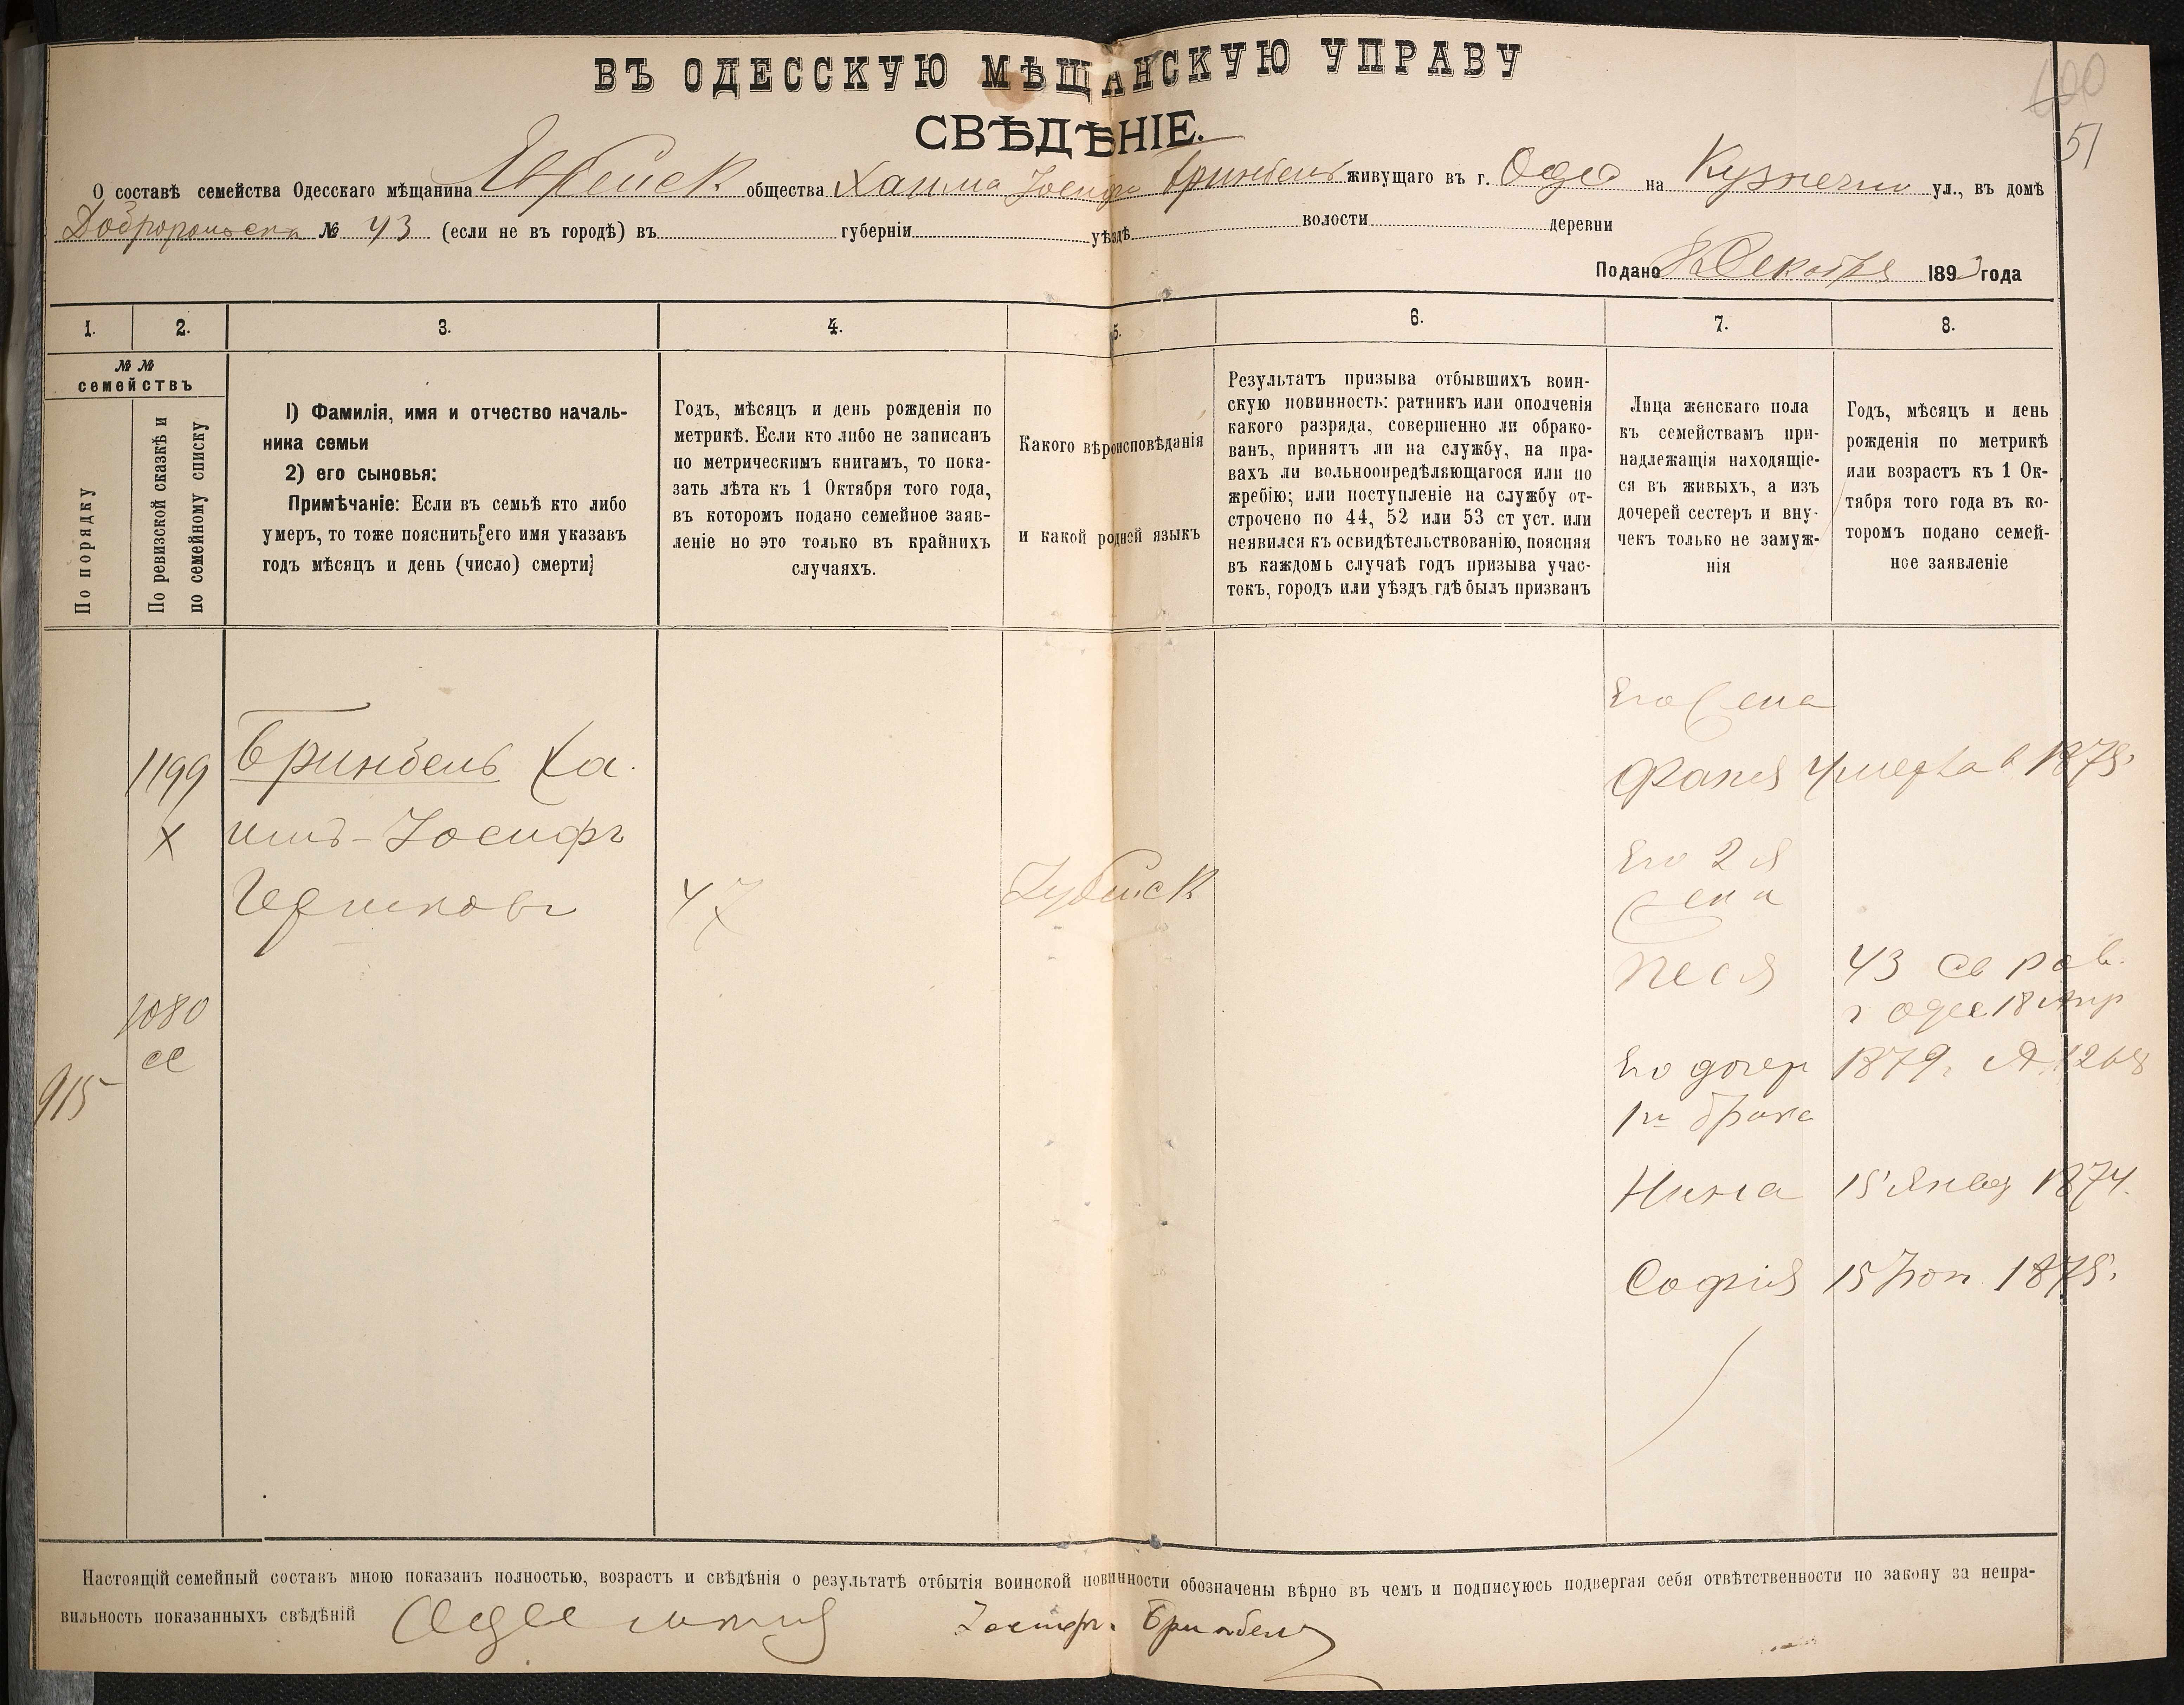 ВЪ ОДЕССКУЮ МѢЩАНСКУЮ УПРАВУ
СВѢДѢНІЕ.
100
51
О составѣ семейства Одесскаго мѣщанина Еврейск общества Хаима Іосифа Бринбень живущаго въ г. Одес на Кузнечной ул., въ домѣ
№ 43 (если не въ городѣ) въ губерніи уѣздѣ волости деревни
Подано Декабря 1893 года
1. 2. 3. 4. 5. 6. 7. 8.
№ №
семействъ
По порядку
По ревизской сказкѣ и
по семейному списку
1) Фамилія, имя и отчество началь-
ника семьи
2) его сыновья:
Примѣчаніе: Если въ семьѣ кто либо
умеръ, то тоже пояснить его имя указавъ
годъ мѣсяцъ и день (число) смерти]
Годъ, мѣсяцъ и день рожденія по
метрикѣ. Если кто либо не записанъ
по метрическимъ книгамъ, то пока-
зать лѣта къ 1 Октября того года,
въ которомъ подано семейное заяв-
леніе но это только въ крайнихъ
случаяхъ.
Какого вѣроисповѣданія
и какой родной языкъ
Результатъ призыва отбывшихъ воин-
скую повинность: ратникъ или ополченія
какого разряда, совершенно ли обрако-
ванъ, принятъ ли на службу, на пра-
вахъ ли вольноопредѣляющагося или по
жребію; или поступленіе на службу от-
строчено по 44, 52 или 53 ст уст. или
неявился къ освидѣтельствованію, поясняя
въ каждомъ случаѣ годъ призыва учас-
токъ, городъ или уѣздъ гдѣ былъ призванъ
Лица женскаго пола
къ семействамъ при-
надлежащія находящіе-
ся въ живыхъ, а изъ
дочерей сестеръ и вну-
чекъ только не замуж-
нія
Годъ, мѣсяцъ и день
рожденія по метрикѣ
или возрастъ къ 1 Ок-
тября того года въ ко-
торомъ подано семей-
ное заявленіе
1199
х
Бринбень Ха-
имъ-Іосифъ
Гершковъ
47
Іудейск
Его Жена
Фаня умерла в 1878.
Его 2 я
Жена
Песя
43 Св рав.
г Одес. 18 Апр
1879. 1268
1080
915
Его дочер
1го брака
Нина 15 Январ 1874.
Софія 15 Іюн. 1875.
Настоящій семейный составъ мною показанъ полностью, возрастъ и свѣдѣнія о результатѣ отбытія воинской повинности обозначены вѣрно въ чемъ и подписуюсь подвергая себя отвѣтственности по закону за непра-
вильность показанныхъ свѣдѣній Іосифъ Бринбень